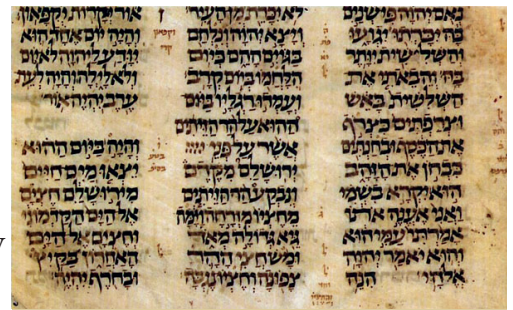 נאם יהוה פי שנים
בה יכרתו יגועו
והשלישית יותר
בה והבאתי את
השלשית באש
וצרפתים כצרף
את הכסף ובחנתים
כבחן את הזהב
הוא יקרא בשמי
ואני אענה אתו
אמרתי עמי הוא
והוא יאמר יהוה
אלהי הנה
לא יכרת מן העיר
ויצא יהוה ונלחם
בגוים ההם כיום
הלחמו ביום קרב
ועמדו רגליו ביום
ההוא על הר הזיתים
אשר על פני
ירושלם מקדם
ונבקע הר הזיתים
מחציו מזרחה וימה
גיא גדולה מאד
ומש חצי ההר
צפונה וחציו נגבה
אור יקרות וקפאון
והיה יום אחד הוא
יודע ליהוה לא יום
ולא לילה והיה לעת
ערב יהיה אור
והיה ביום ההוא
יצאו מים חיים
מירושלם חצים
אל הים הקדמוני
וחצים אל הים
האחרון בקיץ
ובחרף יהיה